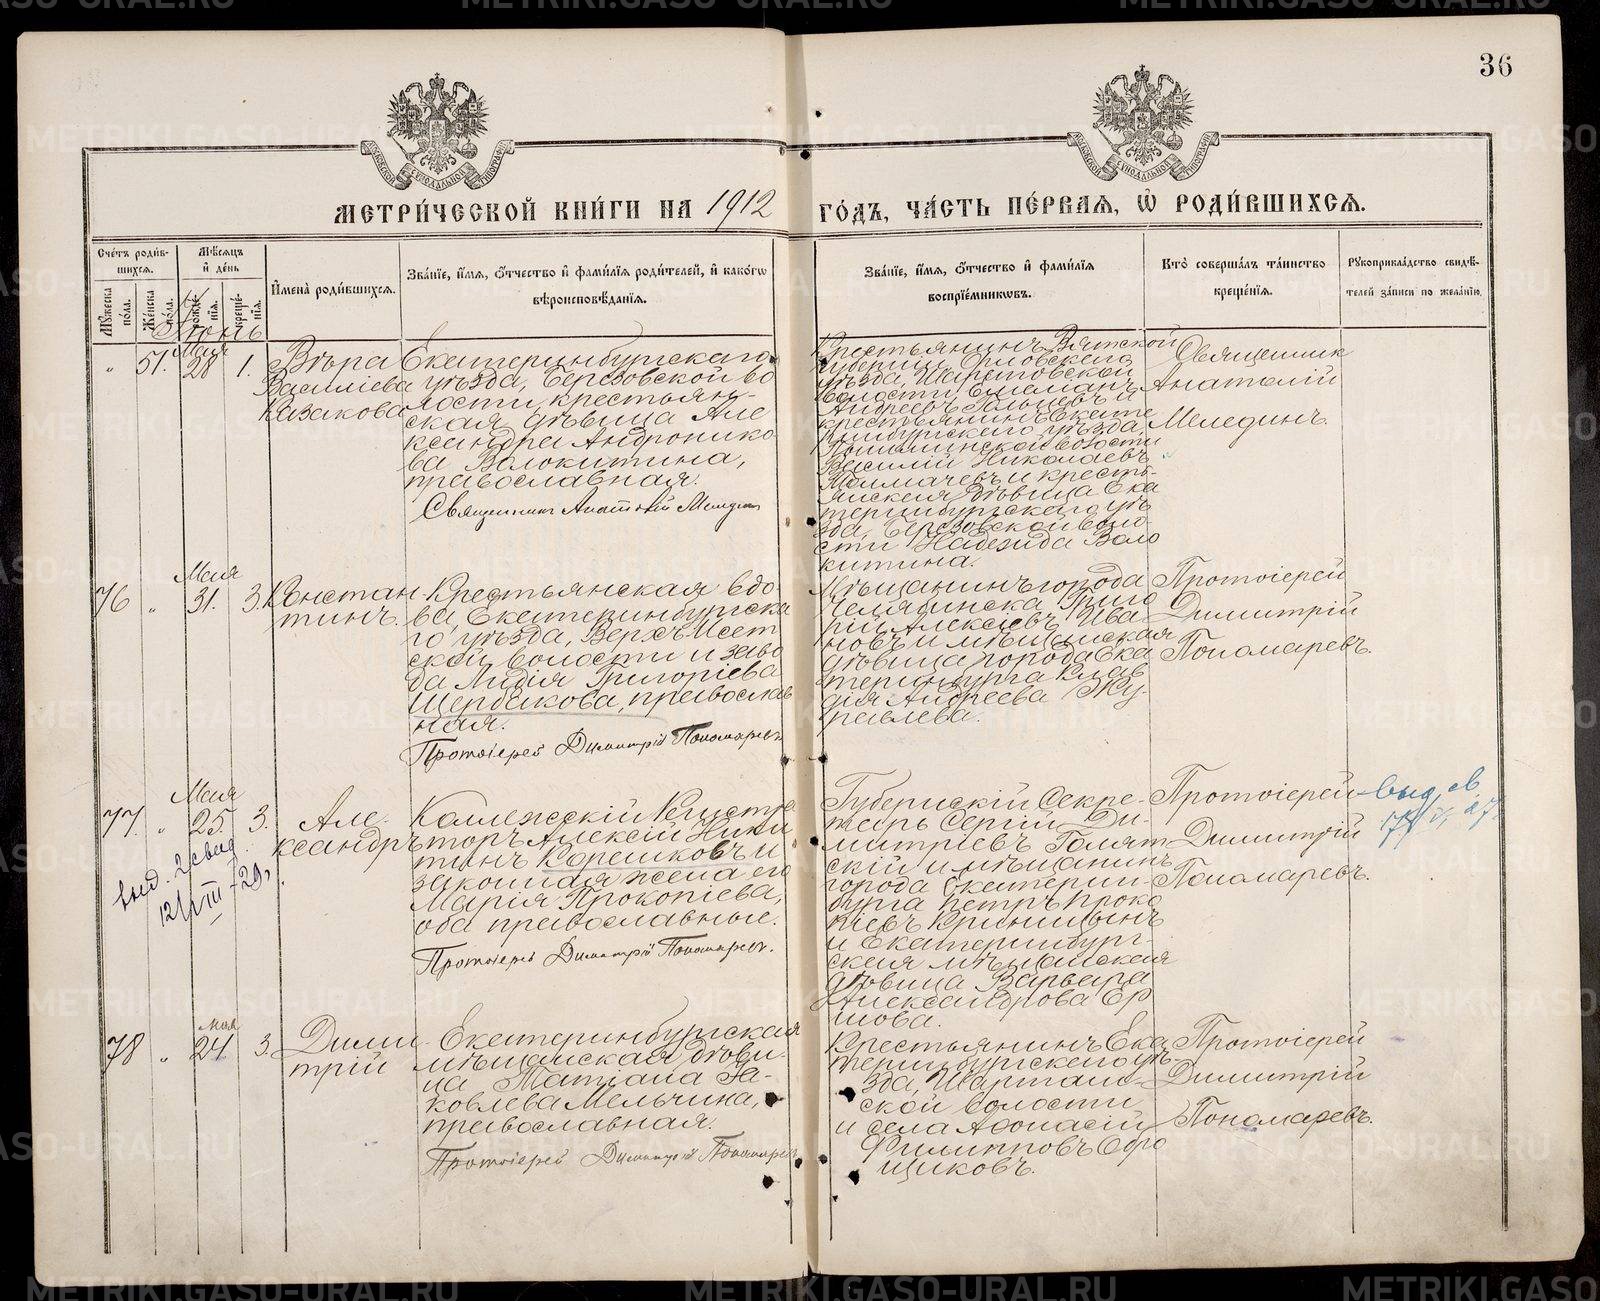 36
МЕТРИ́ЧЕСКОЙ КНИ́ГИ НА 1912 ГО́ДЪ, ЧА́СТЬ ПЕ́РВАѦ, Ѡ҆ РОДИ́ВШИХСѦ.
Сче́тъ роди́в-
шихсѧ.
Мꙋ́жеска по́ла.
Же́нска по́ла.
Мѣ́сѧцъ
и҆ де́нь
рожде́-
нїѧ.
креще́-
нїѧ.
И҆мена̀ роди́вшихсѧ.
Зва́нїе, и҆́мѧ, ѻ҆́тчество и҆ фами́лїѧ роди́телей, и҆ како́гѡ
вѣроисповѣ́данїѧ.
Зва́нїе, и҆́мѧ, ѻ҆́тчество и҆ фами́лїѧ
воспрїе́мникѡвъ.
Кто̀ соверша́лъ та́инство
креще́нїѧ.
Рꙋкоприкла́дство свидѣ́-
телей за́писи по жела́нїю.
Іюнь
„ 51. Мая 28 1.
Вѣра
Василіева
Казакова
Екатеринбургскаго
уѣзда, Березовской во
лости, крестьян-
ская дѣвица Але
ксандра Андронико
ва Волокитина,
православная.
Священникъ Анатолій Мелединъ
Крестьянинъ Вятской
губерніи, Орловскаго
уѣзда,
волости, Емеліанъ
Андреевъ и
крестьянинъ Екате
ринбургскаго уѣзда,
волости
Василій Николаевъ
и кресть-
янская дѣвица Ека
теринбургскаго уѣ
зда, Березовской воло
сти Надежда Воло
китина.
Священник
Анатолій
Мелединъ.
76 „ Мая 31. 3.
Констан
тинъ.
Крестьянская вдо-
ва, Екатеринбургска
го уѣзда, Верхъ-Исет
ской волости и заво
да Лидія Григоріева
Щербакова, православ
ная.
Протоіерей Димитрій Пономаревъ
Мѣщанинъ города
Челябинска Григо
рій Алексѣевъ Ива
новъ и мѣщанская
дѣвица города Ека
теринбурга Клав
дія Андреева Жу-
равлева.
Протоіерей
Димитрій
Пономаревъ.
77. „ Мая 25. 3.
выд. 2 свид.
12/VIII-29.
Але-
ксандръ.
Коллежскій Регистра
торъ Алексій Ники
тинъ Корешковъ и
законная жена его
Марія Прокопіева,
оба православные.
Протоіерей Димитрій Пономаревъ.
Губернскій Секре-
тарь Сергій Ди-
митріевъ Голят-
скій и мѣщанинъ
города Екатерин-
бурга Петръ Проко
піевъ Криницынъ
и Екатеринбург-
ская мѣщанская
дѣвица Варвара
Александрова Ер
шова.
Протоіерей
Димитрій
Пономаревъ.
выд. св.
78 „ мая 24 3.
Дими-
трій
Екатеринбургская
мѣщанская дѣви-
ца Татіана Я-
ковлева Мельчина,
православная.
Протоіерей Димитрій Пономаревъ
Крестьянинъ Ека
теринбургскаго уѣ-
зда, Шарташ-
ской волости
и села Аѳонасій
Филипповъ Обро
щиковъ.
Протоіерей
Димитрій
Пономаревъ.
METRIKI.GASO-URAL.RU